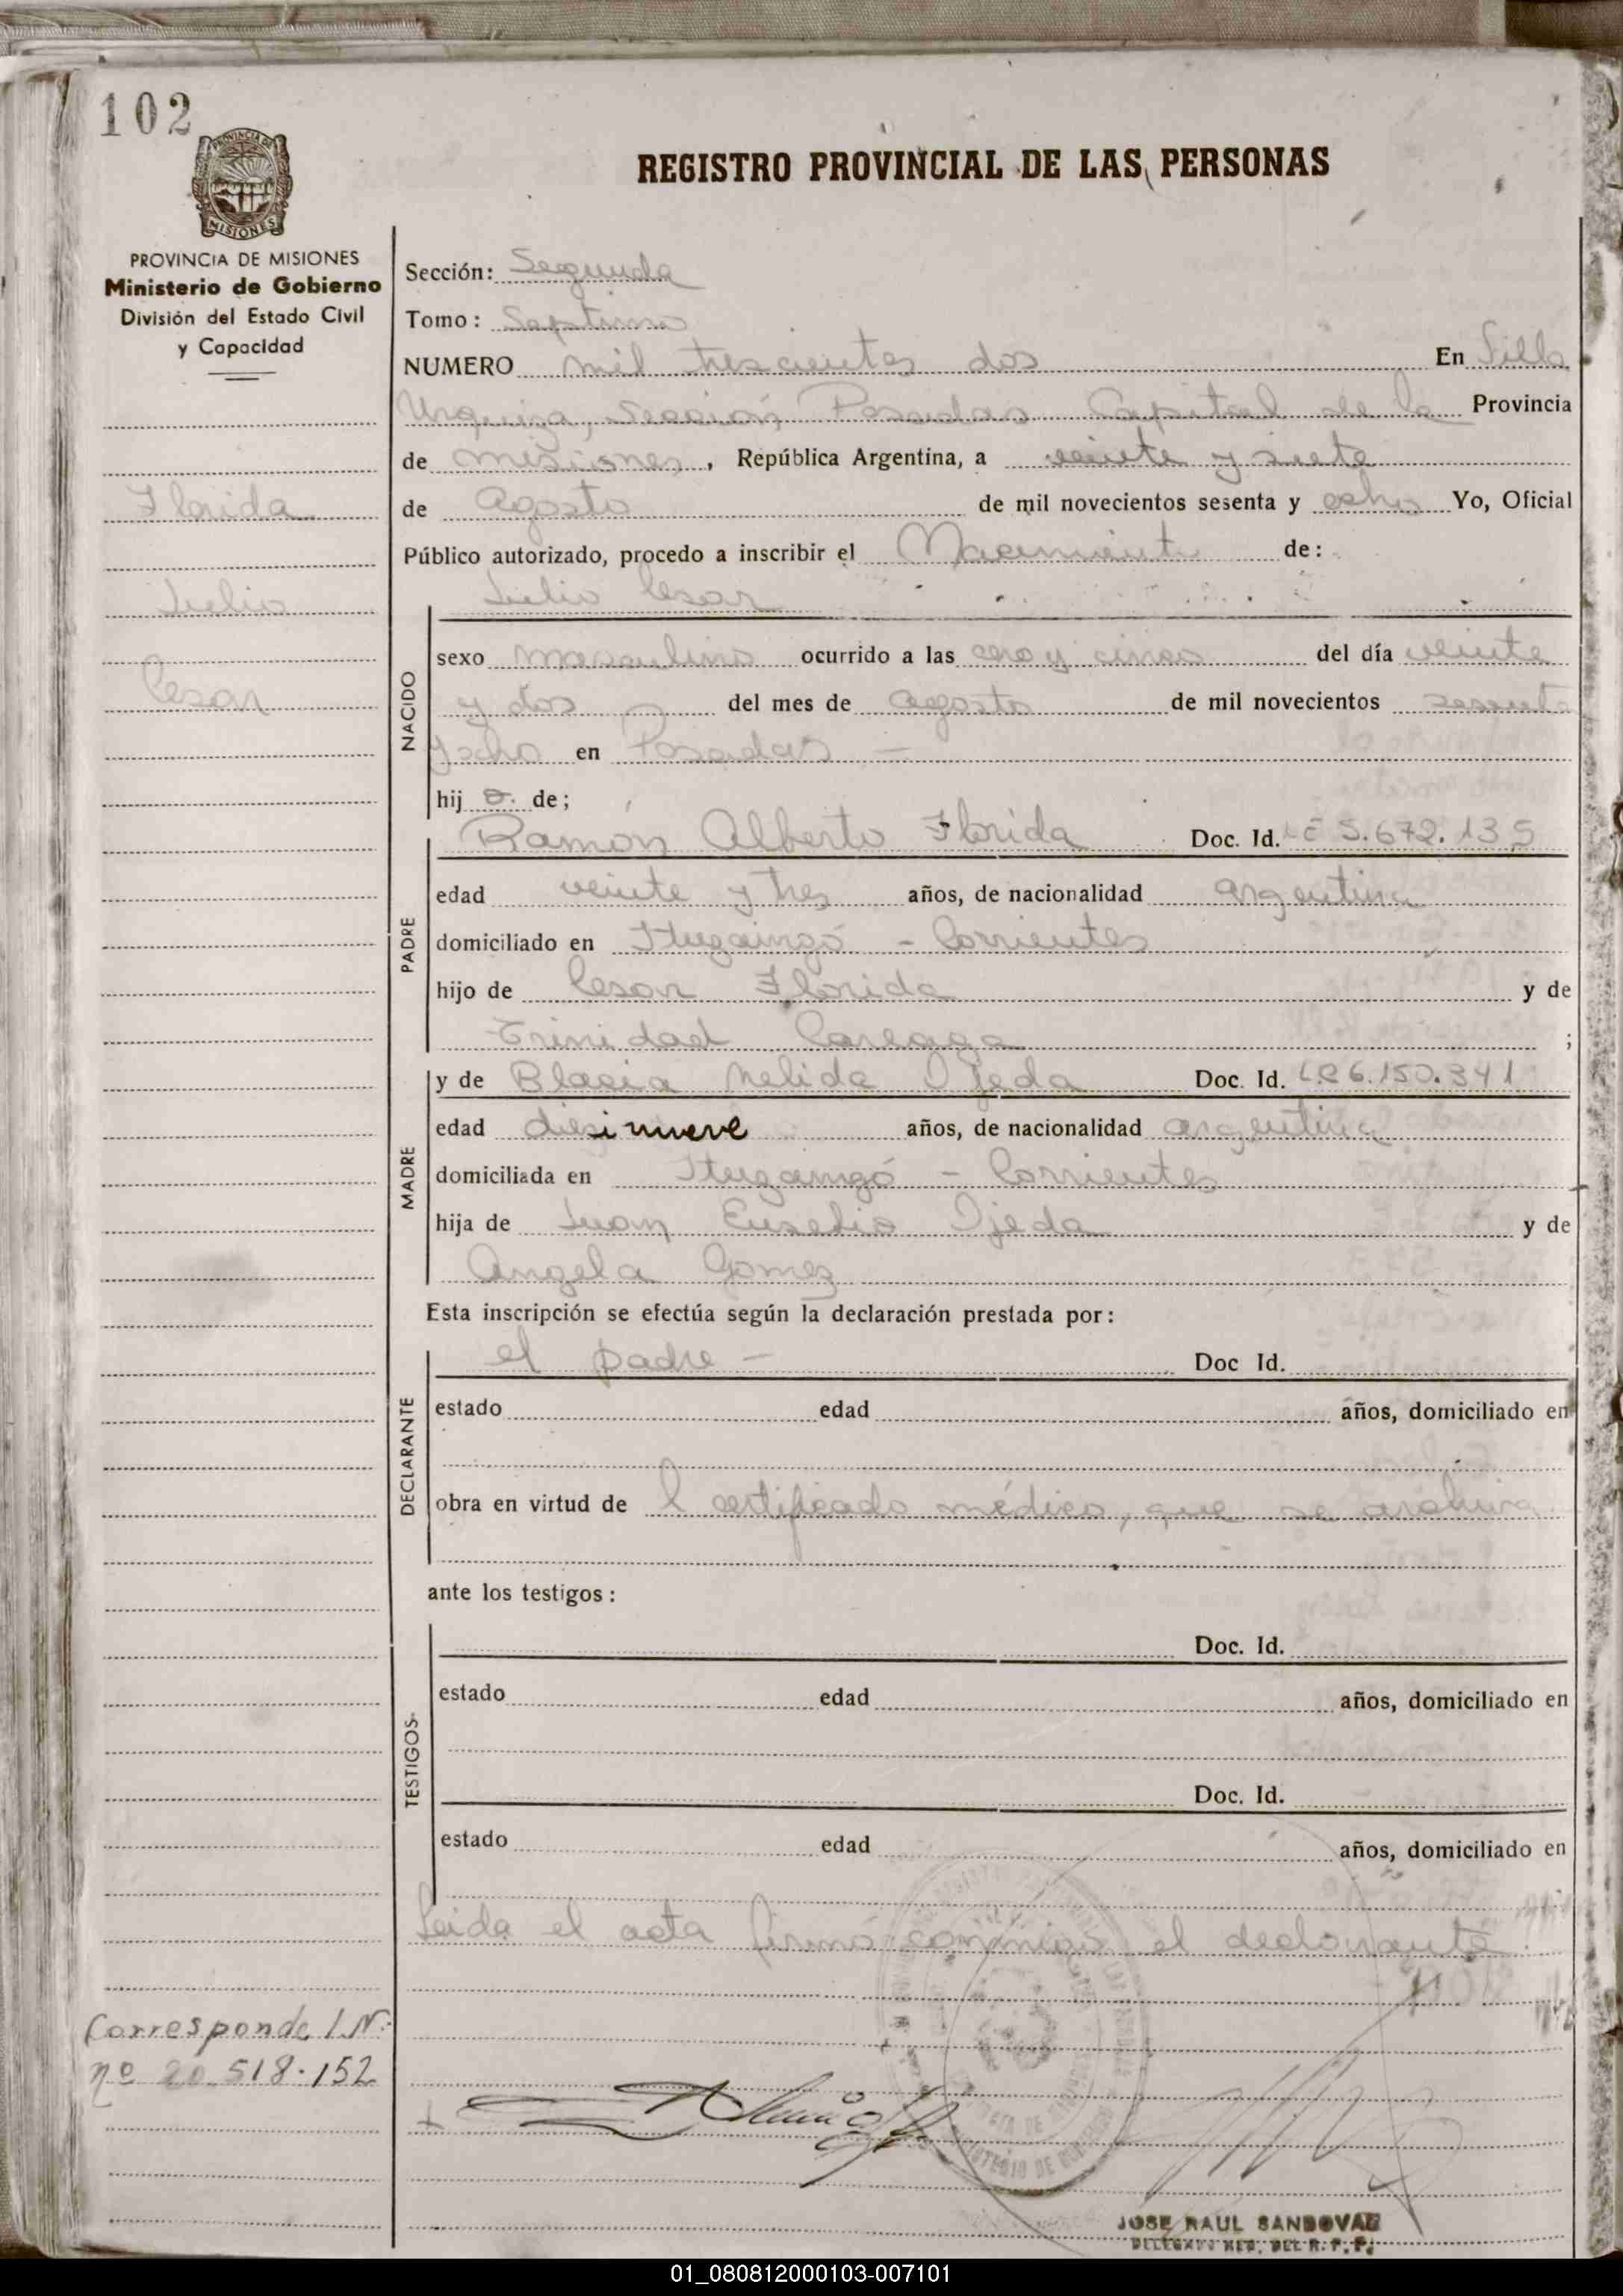 102
PROVINCIA DE
MISIONES
REGISTRO PROVINCIAL DE LAS PERSONAS
PROVINCIA DE MISIONES
Ministerio de Gobierno
División del Estado Civil
y Capacidad
Florida
Julio
Cesar
Sección: Segunda
Tomo: Septimo
NUMERO mil trescientos dos En Villa
Urquiza, Sección Posadas Capital de la Provincia
de Misiones, República Argentina, a veinte y siete
de Agosto de mil novecientos sesenta y ocho Yo, Oficial
Público autorizado, procedo a inscribir el Nacimiento de:
Julio Cesar
NACIDO
sexo masculino ocurrido a las cero y cinco del día veinte
y dos del mes de agosto de mil novecientos sesenta
y ocho en Posadas —
hij o. de;
PADRE
Ramón Alberto Florida Doc. Id. LE 5.672.135
edad veinte y tres años, de nacionalidad argentina
domiciliado en Ituzaingó - Corrientes
hijo de Cesar Florida y de
Trinidad Careaga ;
MADRE
y de Blasia Nelida Ojeda Doc. Id. LC 6.150.341
edad diesinueve años, de nacionalidad argentina
domiciliada en Ituzaingó - Corrientes
hija de Juan Eusebio Ojeda y de
Angela Gomez
Esta inscripción se efectúa según la declaración prestada por:
DECLARANTE
el padre — Doc Id.
estado edad años, domiciliado en
obra en virtud de l certificado médico, que se archiva
ante los testigos:
TESTIGOS
Doc. Id.
estado edad años, domiciliado en
Doc. Id.
estado edad años, domiciliado en
Leida el acta firmó conmigo el declarante.
Corresponde I.N.
nº 20.518.152
JOSE RAUL SANDOVAL
DELEGADO REG. DEL R. P. P.
01_080812000103-007101